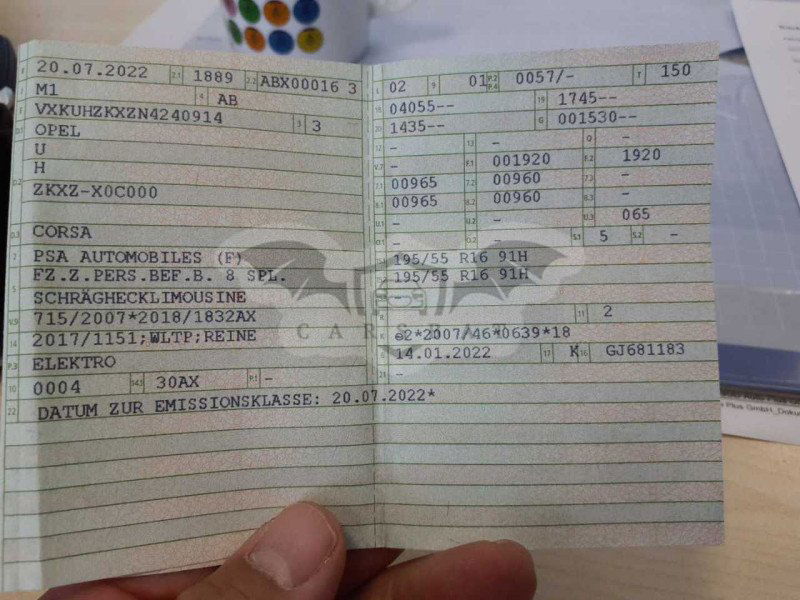 20.07.2022 2.1 1889 2.2 ABX00016 3
J M1 4 AB
E VXKUHZKXZN4240914 3 3
D.1 OPEL
U
H
D.2 ZKXZ-X0C000
D.3 CORSA
2 PSA AUTOMOBILES (F)
5 FZ.Z.PERS.BEF.B. 8 SPL.
SCHRÄGHECKLIMOUSINE
V.9 715/2007*2018/1832AX
14 2017/1151;WLTP;REINE
P.3 ELEKTRO
10 0004 14.1 30AX P.1 -
22 DATUM ZUR EMISSIONSKLASSE: 20.07.2022*
L 02 9 01 P.2 P.4 0057/- T 150
18 04055-- 19 1745--
20 1435-- G 001530--
12 - 13 - Q -
V.7 - F.1 001920 F.2 1920
7.1 00965 7.2 00960 7.3 -
8.1 00965 8.2 00960 8.3 -
U.1 - U.2 - U.3 065
O.1 - O.2 - S.1 5 S.2 -
195/55 R16 91H
195/55 R16 91H
-
R 11 2
K e2*2007/46*0639*18
6 14.01.2022 17 K 16 GJ681183
21 -
CARS
Plus GmbH_Doku